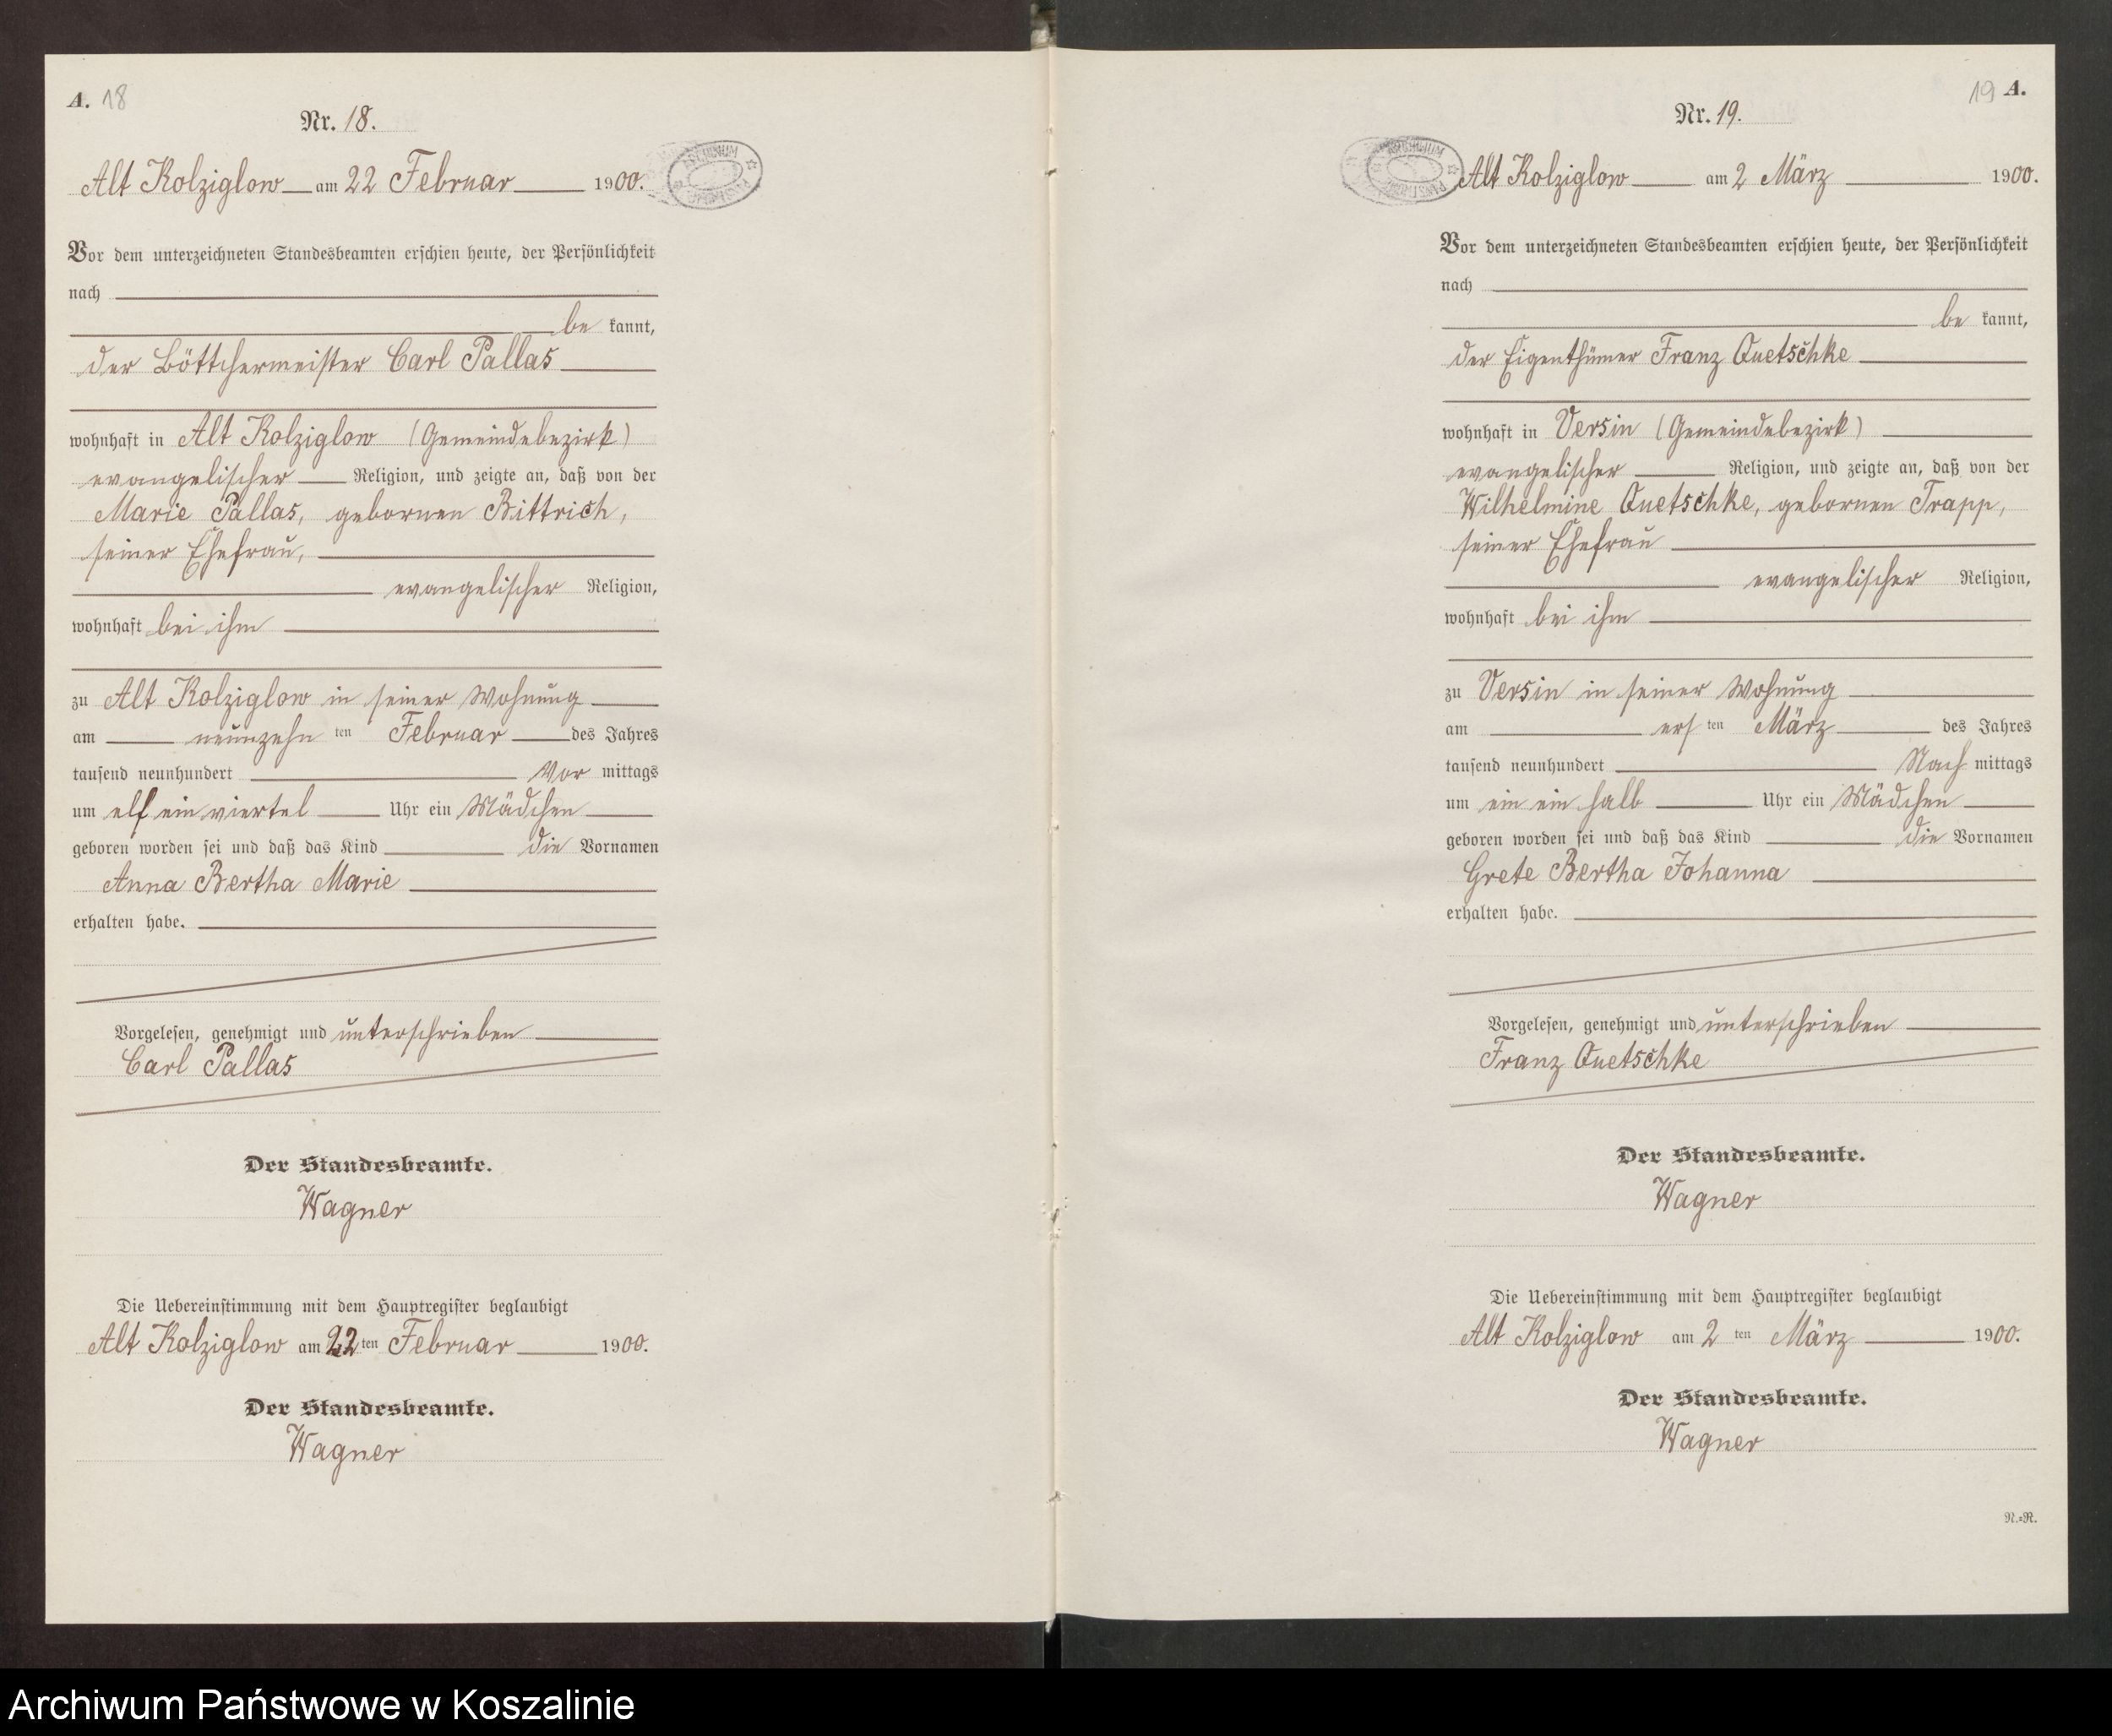 A. 18
Nr. 18.
Alt Kolziglow am 22 Februar 1900.
Vor dem unterzeichneten Standesbeamten erschien heute, der Persönlichkeit
nach
be kannt,
der Böttchermeister Carl Pallas
wohnhaft in Alt Kolziglow (Gemeindebezirk)
evangelischer Religion, und zeigte an, daß von der
Marie Pallas, gebornen Bittrich,
seiner Ehefrau,
evangelischer Religion,
wohnhaft bei ihm
zu Alt Kolziglow in seiner Wohnung
am neunzehn ten Februar des Jahres
tausend neunhundert Vor mittags
um elf ein viertel Uhr ein Mädchen
geboren worden sei und daß das Kind die Vornamen
Anna Bertha Marie
erhalten habe.
Vorgelesen, genehmigt und unterschrieben
Carl Pallas
Der Standesbeamte.
Wagner
Die Uebereinstimmung mit dem Hauptregister beglaubigt
Alt Kolziglow am 22 ten Februar 1900.
Der Standesbeamte.
Wagner
19 A.
Nr. 19.
ARCHIWUM
Alt Kolziglow am 2 März 1900.
Vor dem unterzeichneten Standesbeamten erschien heute, der Persönlichkeit
nach
be kannt,
der Eigenthümer Franz Quetschke
wohnhaft in Versin (Gemeindebezirk)
evangelischer Religion, und zeigte an, daß von der
Wilhelmine Quetschke, gebornen Trapp,
seiner Ehefrau
evangelischer Religion,
wohnhaft bei ihm
zu Versin in seiner Wohnung
am ers ten März des Jahres
tausend neunhundert Nach mittags
um ein ein halb Uhr ein Mädchen
geboren worden sei und daß das Kind die Vornamen
Grete Bertha Johanna
erhalten habe.
Vorgelesen, genehmigt und unterschrieben
Franz Quetschke
Der Standesbeamte.
Wagner
Die Uebereinstimmung mit dem Hauptregister beglaubigt
Alt Kolziglow am 2 ten März 1900.
Der Standesbeamte.
Wagner
N.=R.
Archiwum Państwowe w Koszalinie